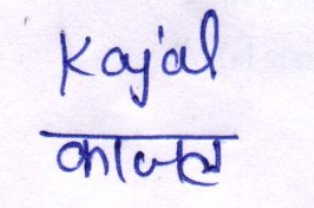 Kajal
काजल